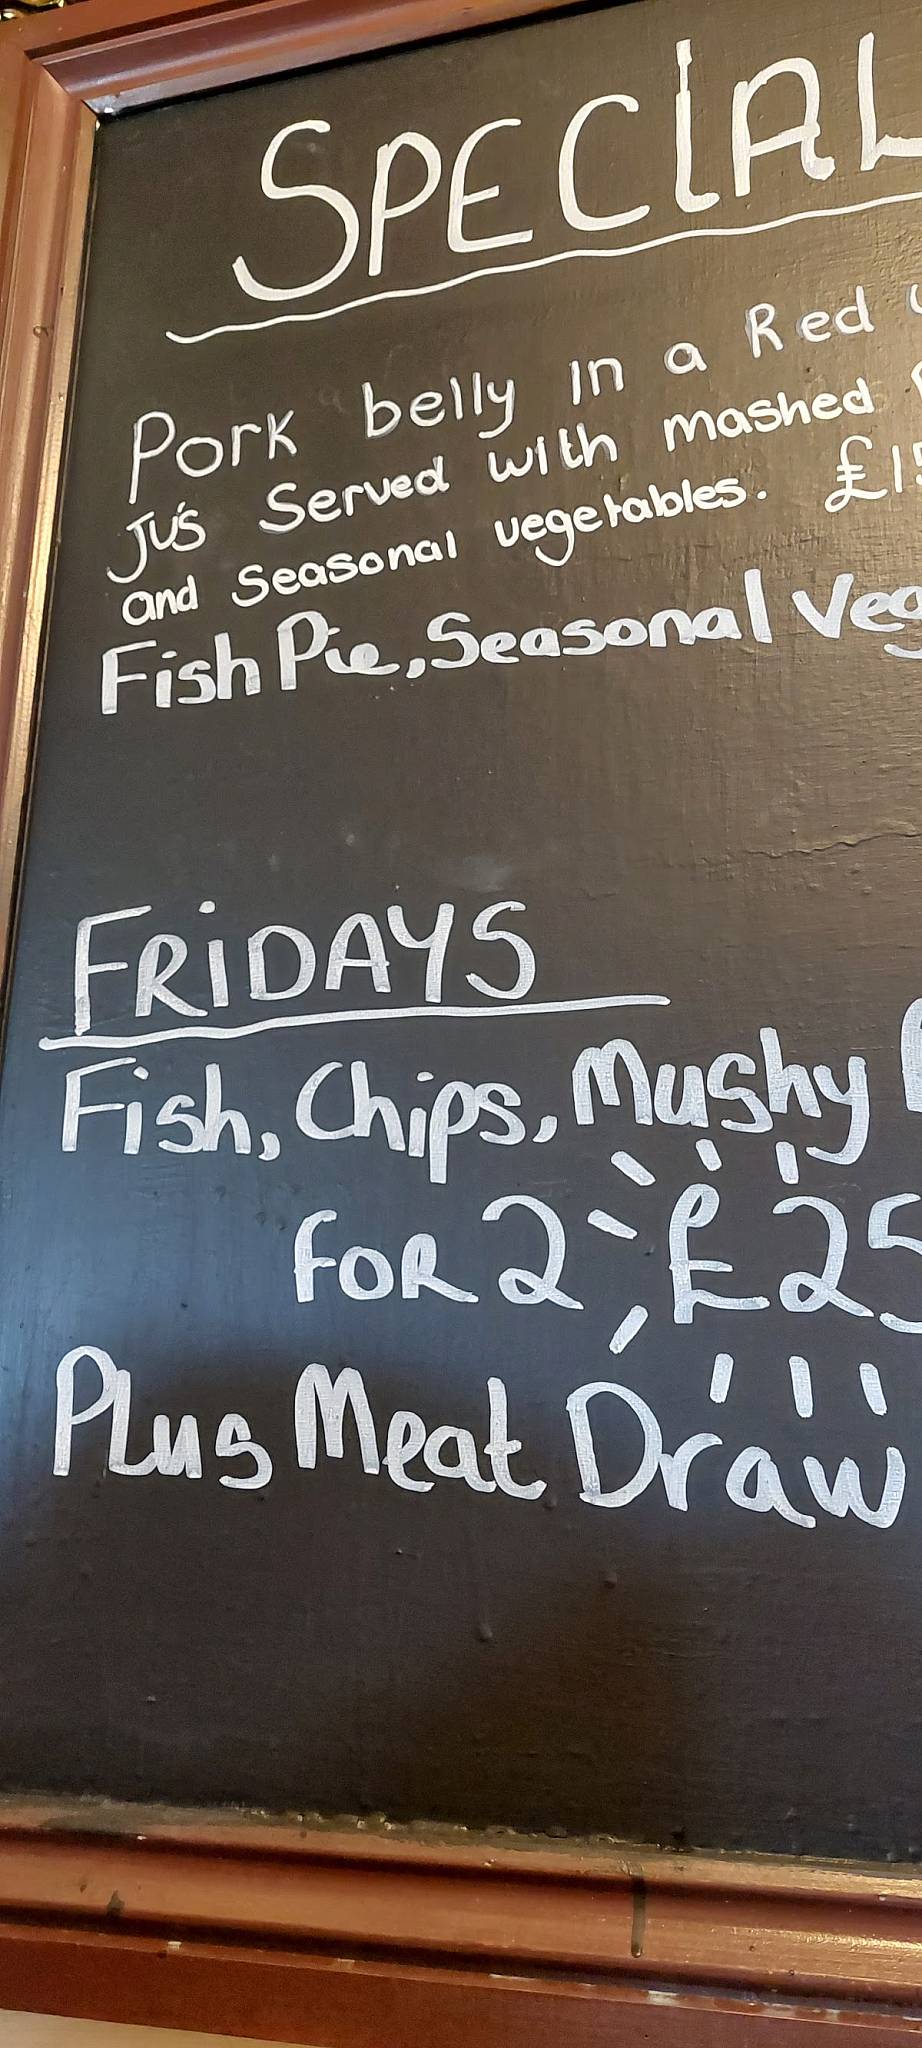 SPECIAL
Pork belly in a Red
Jus Served with mashed
and Seasonal vegetables. £15
Fish Pie, Seasonal Veg
FRIDAYS
Fish, Chips, Mushy
FOR 2 £25
Plus Meat Draw